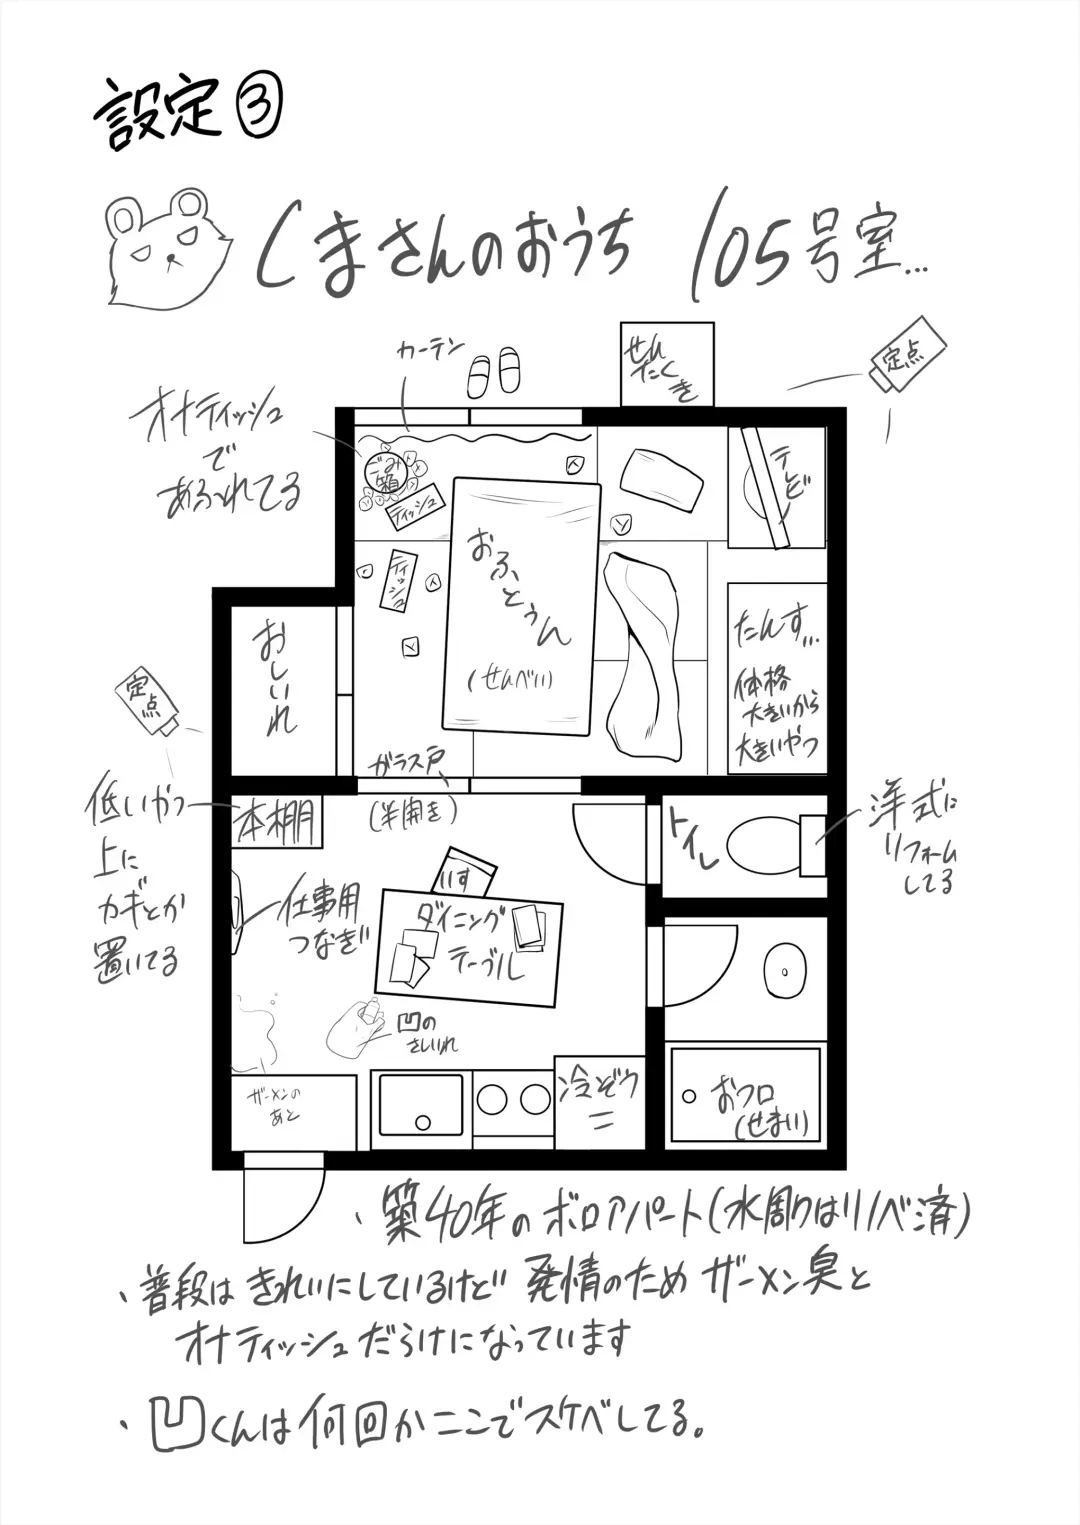 設定③
くまさんのおうち 105号室…
カーテン
せん
たく
き
定点
オナティッシュ
で
あふれてる
ごみ
箱
ティッシュ
テレビ
おふとぅん
(せんべい)
ティッシュ
たんす…
体格
大きいから
大きいやつ
おしいれ
定点
ガラス戸
(半開き)
低いやつ
上に
カギとか
置いてる
本棚
トイレ
洋式に
リフォーム
してる
いす
ダイニング
テーブル
仕事用
つなぎ
凹の
さしいれ
ザーメンの
あと
冷ぞう
おフロ
(せまい)
・築40年のボロアパート(水周りはリノベ済)
・普段はきれいにしているけど発情のためザーメン臭と
オナティッシュだらけになっています
・凹くんは何回かここでスケベしてる。